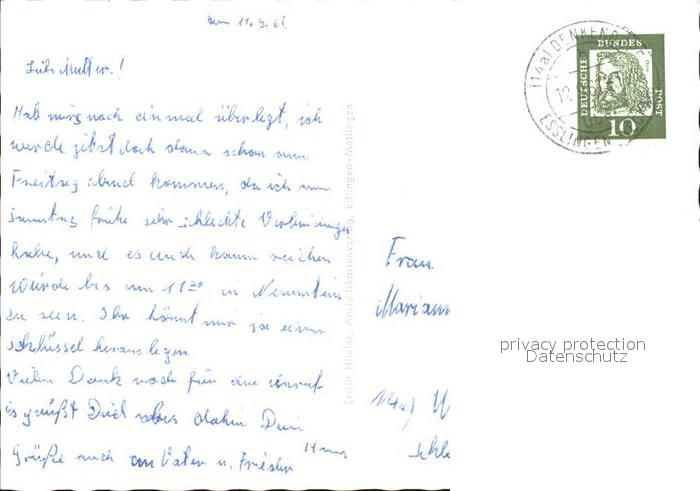 11.9.61.
Liebe Mutter!
Hab mirs noch einmal überlegt, ich
werde jetzt doch dann schon am
Freitag abend kommen, da ich am
Samstag frühe sehr schlechte Verbindungen
habe, und es auch kaum reichen
würde bis um 11 in Neuenstein
zu sein. Ihr könnt mir ja einen
Schlüssel herauslegen
Vielen Dank noch für
es grüßt Dich alles dahin Dein
Hans
Grüße auch an Vater u. Frieder
Erwin Hitzler, Ansichtskartenverlag, Eßlingen-Mettingen
(14a) DENKEN
ESSLINGEN
DEUTSCHE
BUNDES
POST
10
Frau
Mariann
privacy protection
Datenschutz
14a) W
Schl